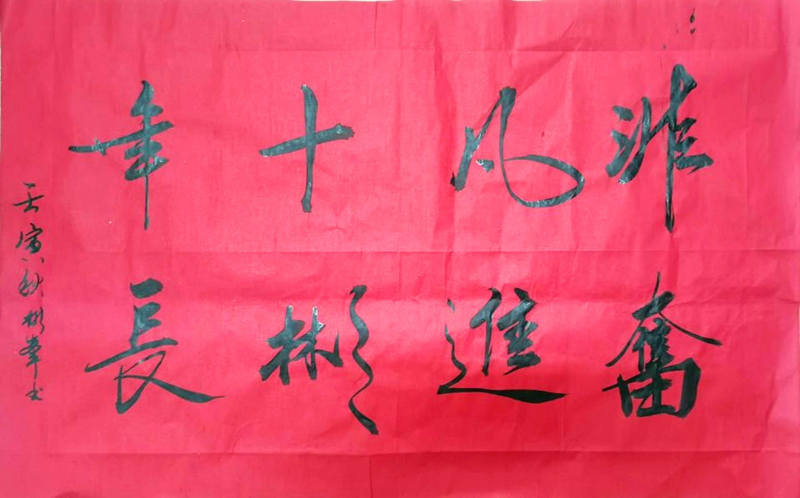 非凡十年
奮進彬長
壬寅秋彬峯书